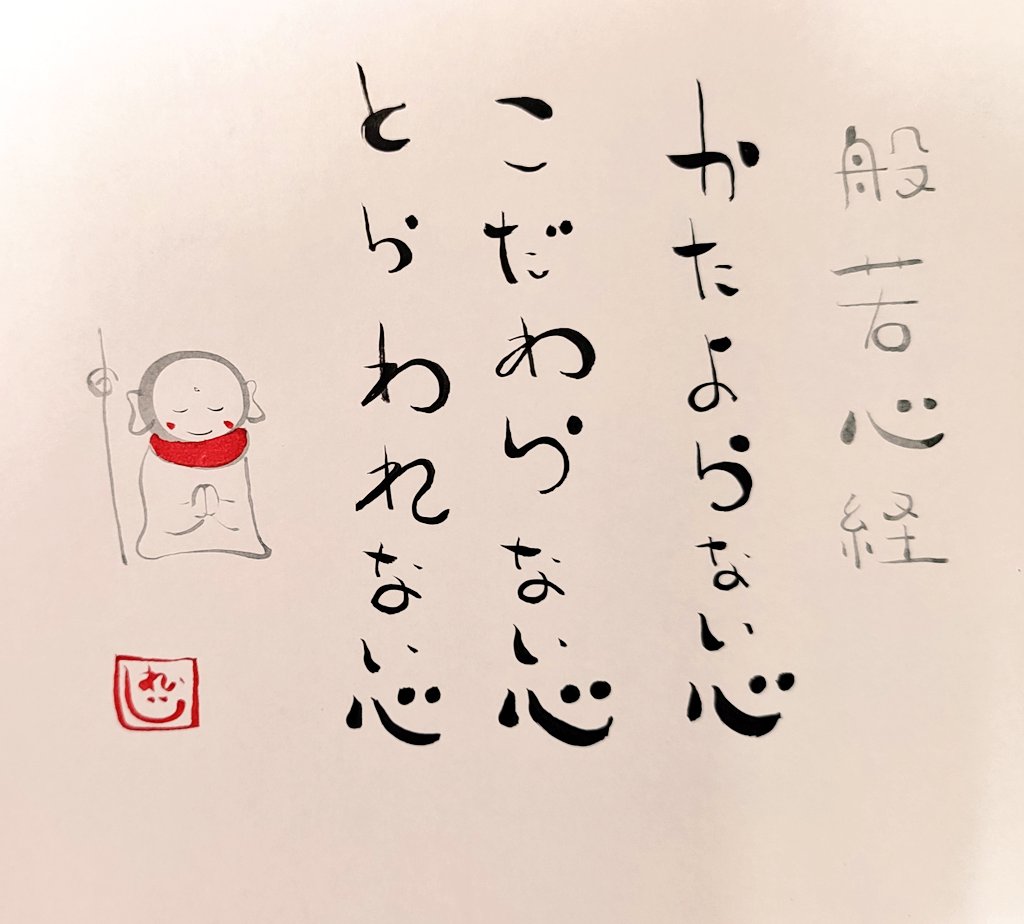 般若心経
かたよらない心
こだわらない心
とらわれない心